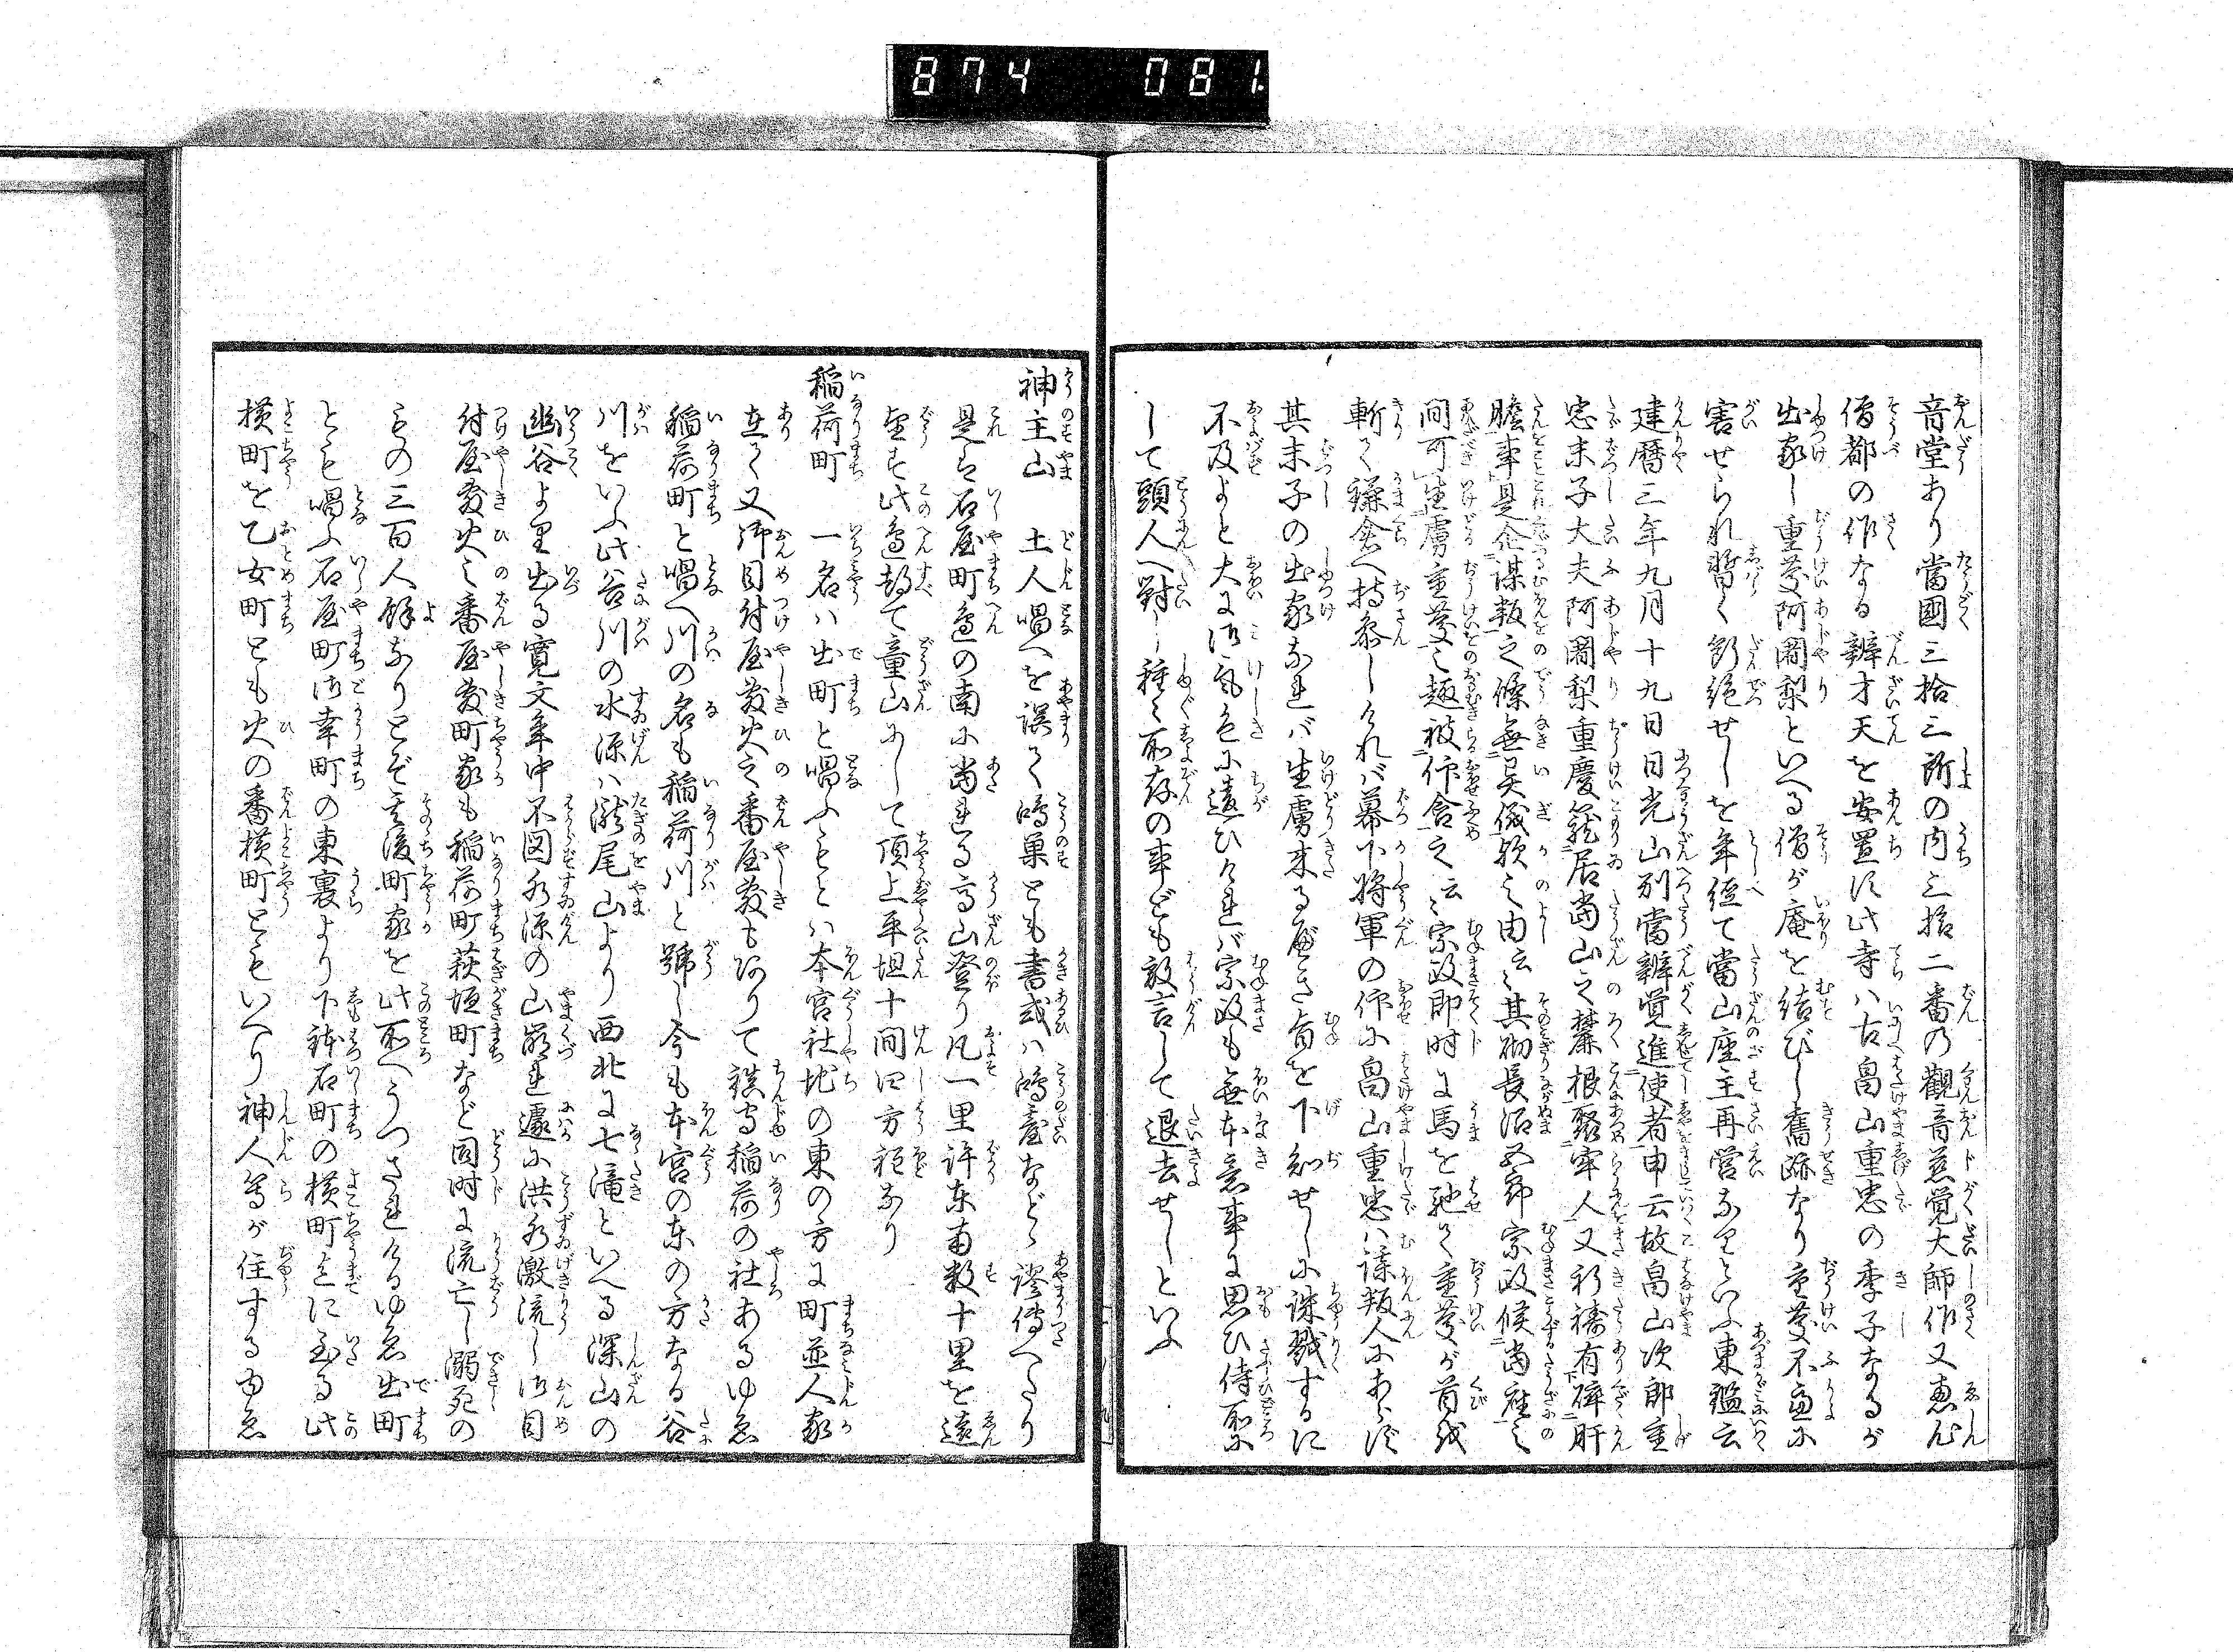 874 081
音堂あり當國三拾三所の内三拾二番の觀音慈覚大師作又恵心
僧都の作なる辨才天を安置す此寺ハ古畠山重忠の季子なるが
出家し重慶阿闍梨といへる僧が庵を結びし舊跡なり重慶不慮に
害せられ暫く断絶せしを年経て當山座主再営なりといふ東鑑云
建暦三年九月十九日日光山別當辨覚進使者申云故畠山次郎重
忠末子大夫阿闍梨重慶籠居當山之麓根聚牢人又祈禱有碎肝
膽事是企謀叛之條無異儀歟之由云々其砌長沼五郎宗政候當座之
間可生虜重慶之趣被仰含之云々宗政即時に馬を馳て重慶が首を
斬て鎌倉へ持参しければ幕下将軍の仰に畠山重忠ハ謀叛人にあらず
其末子の出家なれバ生虜来るべき旨を下知せしに誅戮するに
不及よと大に御氣色に違ひけれバ宗政も無本意事に思ひ侍所に
して頭人へ對し種々所存の事ども放言して退去せしといふ
神主山　土人唱へを誤て鴻巣とも書或ハ鴻臺などゝ謬傳へたり
是は石屋町邊の南に當れる高山登り凡一里許東南数十里を遠
望す此邊都て童山にして頂上平坦十間四方程なり
稲荷町　一名ハ出町と唱ふもとハ本宮社地の東の方に町並人家
在て又御目付屋敷火之番屋敷も有りて鎮守稲荷の社あるゆゑ
稲荷町と唱へ川の名も稲荷川と號し今も本宮の東の方なる谷
川をいふ此谷川の水源ハ瀧尾山より西北に七滝といへる深山の
幽谷より出る寛文年中不図水源の山崩れ遽に洪水激流し御目
付屋敷火之番屋敷町家も稲荷町萩垣町など同時に流亡し溺死の
もの三百人餘なりとぞ其後町家を此所へうつされけるゆゑ出町
とも唱ふ石屋町御幸町の東裏より下鉢石町の横町迄に至る此
横町を乙女町とも火の番横町ともいへり神人等が住するゆゑ